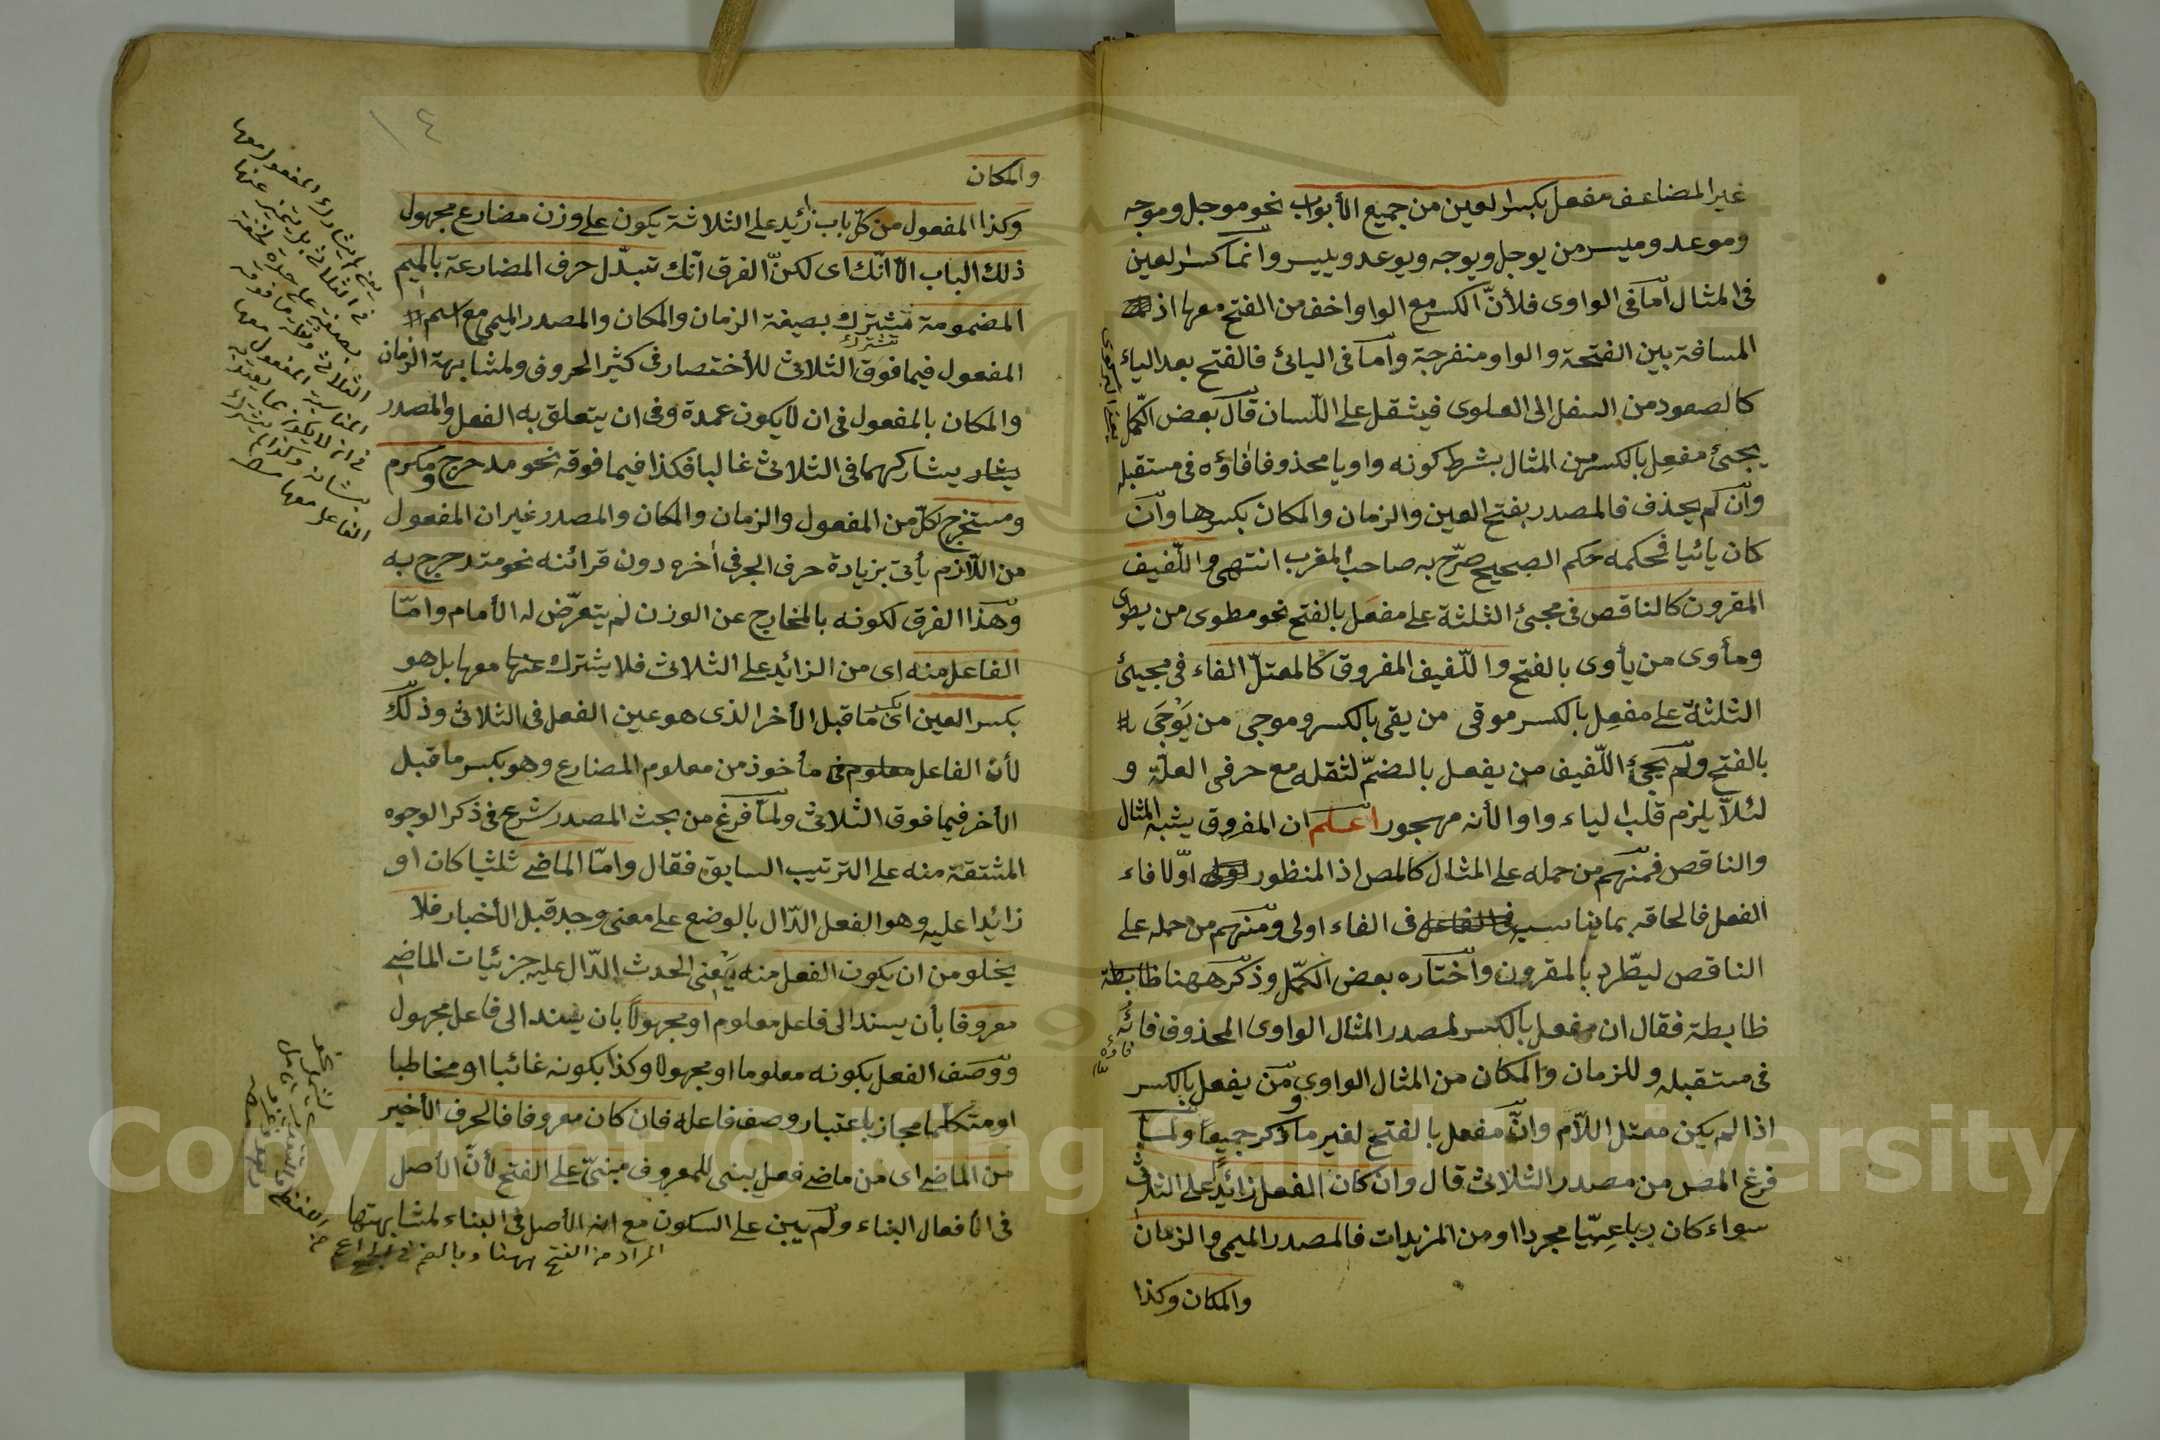 غير المضاعف مفعل بكسر العين من جميع الأبواب نحو موجل وموجه
وموعد وميسر من يوجل ويوجه ويوعد وييسر وانما كسر العين
فى المثال اما فى الواوى فلأنّ الكسر مع الواو اخف من الفتح معها اذ
المسافة بين الفتحة والواو منفرجة واما فى اليائى فالفتح بعد الياء
كالصعود من السفل الى العلوى فيثقل على اللّسان قال بعض الكمّل
يجئ مفعِل بالكسر من المثال بشرط كونه واويا محذوفا فاؤه فى مستقبله
وان لم يحذف فالمصدر بفتح العين والزمان والمكان بكسرها وان
كان يائيا فحكمه حكم الصحيح صرّح به صاحب المغرب انتهى واللّفيف
المقرون كالناقص فى مجئ الثلثة على مفعَل بالفتح نحو مطوى من يطوى
ومأوى من يأوى بالفتح واللّفيف المفروق كالمعتلّ الفاء فى مجيئ
الثلثة على مفعِل بالكسر موقى من يقى بالكسر وموجى من يَوْجَى
بالفتح ولم يجئ اللّفيف من يفعل بالضمّ لثقله مع حرفى العلّة و
لئلاّ يلزم قلب الياء واوا لأنه مهجور اعلم ان المفروق يشبه المثال
والناقص فمنهم من حمله على المثال كالمص اذ المنظور اوّلا فاء
الفعل فالحاقه بما يناسبه فى الفاعل فى الفاء اولى ومنهم من حمله على
الناقص ليطّرد بالمقرون واختاره بعض الكمّل وذكر ههنا ظابطة
ظابطة فقال ان مفعل بالكسر لمصدر المثال الواوى المحذوف فائه
فى مستقبله وللزمان والمكان من المثال الواوى ومن يفعل بالكسر
اذا لم يكن معتل اللاّم وانّ مفعل بالفتح لغير ما ذكر جميعا ولما
فرغ المص من مصدر الثلاثى قال وان كان الفعل زائدا على الثلاثى
سواء كان رباعيّا مجردا او من المزيدات فالمصدر الميمى والزمان
والمكان وكذا
والمكان
وكذا المفعول من كل باب زائد على الثلاثة يكون على وزن مضارع مجهول
ذلك الباب الاّ انّك اى لكنّ الفرق انّك تبدّل حرف المضارعة بالميم
المضمومة تشترك بصيغة الزمان والمكان والمصدر الميمى مع اسم
تشترك
المفعول فيما فوق الثلاثى للأختصار فى كثير الحروف ولمشابهة الزمان
والمكان بالمفعول فى ان لا يكون عمدة وفى ان يتعلق به الفعل والمصدر
يشار يشاركهما فى الثلاثى غالبا فكذا فيما فوقه نحو مدحرج ومكرم
ومستخرج لكل من المفعول والزمان والمكان والمصدر غير ان المفعول
من اللّازم يأتى بزيادة حرف الجر فى اخره دون قرائنه نحو متدحرج به
وهذا الفرق لكونه بالخارج عن الوزن لم يتعرّض له الأمام وامّا
الفاعل منه اى من الزائد على الثلاثى فلا يشترك عنها معها بل هو
بكسر العين اى بكسر ما قبل الأخر الذى هو عين الفعل فى الثلاثى وذلك
لأن الفاعل معلوم فى مأخوذ من معلوم المضارع وهو بكسر ما قبل
الأخر فيما فوق الثلاثى ولما فرغ من بحث المصدر شرع فى ذكر الوجوه
المشتقة منه على الترتيب السابق فقال وامّا الماضى ثلثيا كان او
زائدا عليه وهو الفعل الدّال بالوضع على معنى وجد قبل الأخبار فلا
يخلو من ان يكون الفعل منه يعنى الحدث الدّال عليه جزئيات الماضى
معروفا بأن يسند الى فاعل معلوم او مجهولاً بان يسند الى فاعل مجهول
ووصف الفعل بكونه معلوما او مجهولا وكذا بكونه غائبا او مخاطبا
او متكلما مجاز باعتبار وصف فاعله فان كان معروفا فالحرف الأخير
من الماضى اى من ماضى فعل يبنى للمعروف مبنىّ على الفتح لأنّ الأصل
فى الأفعال البناء ولم يبن على السكون مع انه الأصل فى البناء لمشابهتها
المراد من الفتح ههنا وبالضم فى
Copyright © King Saud University